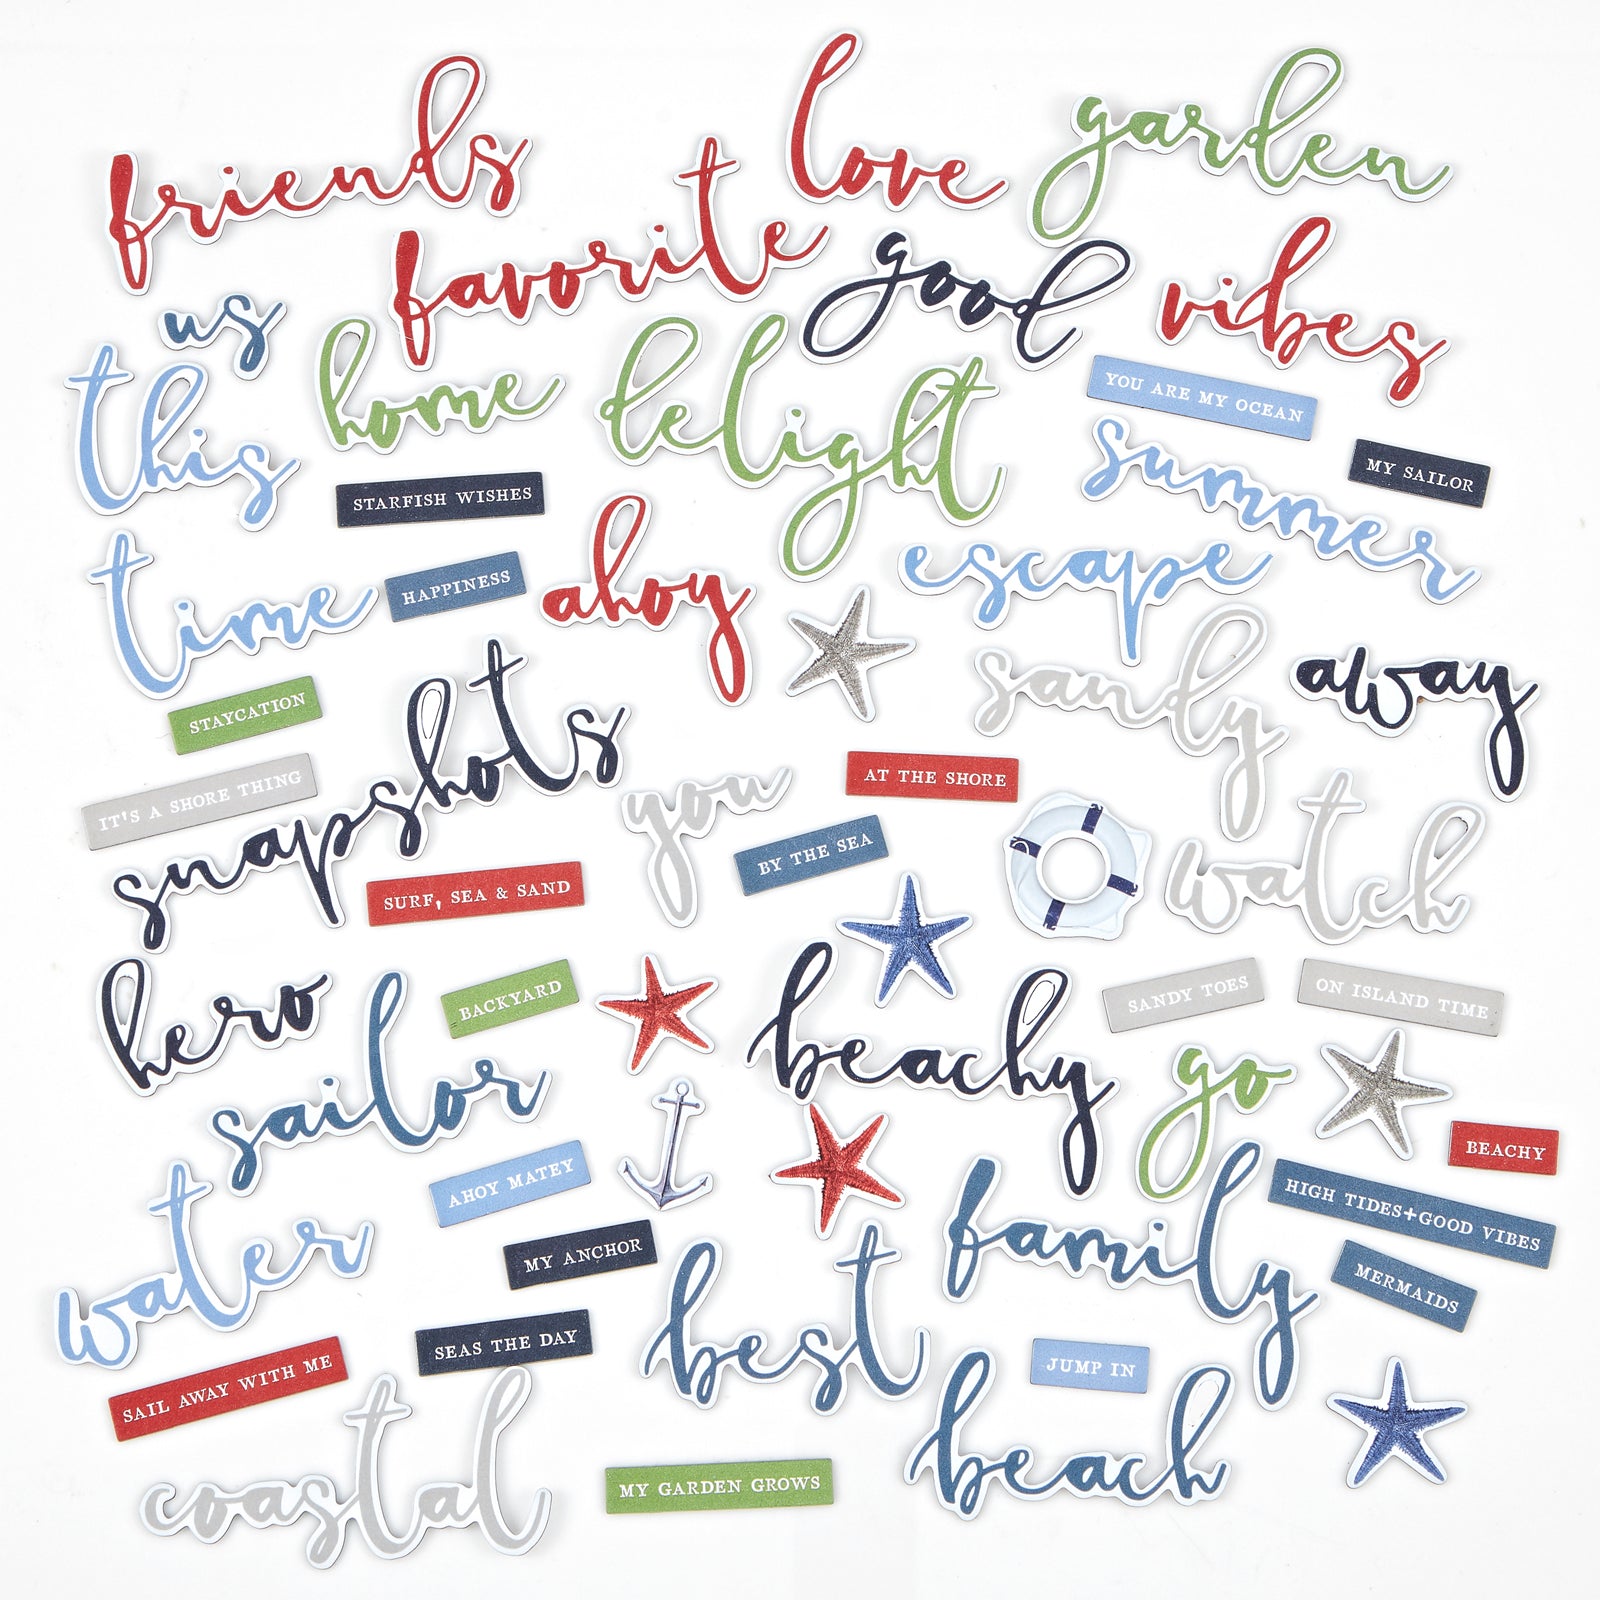 friends
love
garden
favorite
good
vibes
us
this
home
delight
YOU ARE MY OCEAN
summer
MY SAILOR
STARFISH WISHES
time
HAPPINESS
ahoy
escape
sandy
away
STAYCATION
snapshots
IT'S A SHORE THING
you
AT THE SHORE
BY THE SEA
watch
SURF, SEA & SAND
hero
sailor
BACKYARD
beachy
SANDY TOES
ON ISLAND TIME
go
BEACHY
water
AHOY MATEY
family
HIGH TIDES+GOOD VIBES
MY ANCHOR
MERMAIDS
best
SEAS THE DAY
JUMP IN
SAIL AWAY WITH ME
beach
coastal
MY GARDEN GROWS